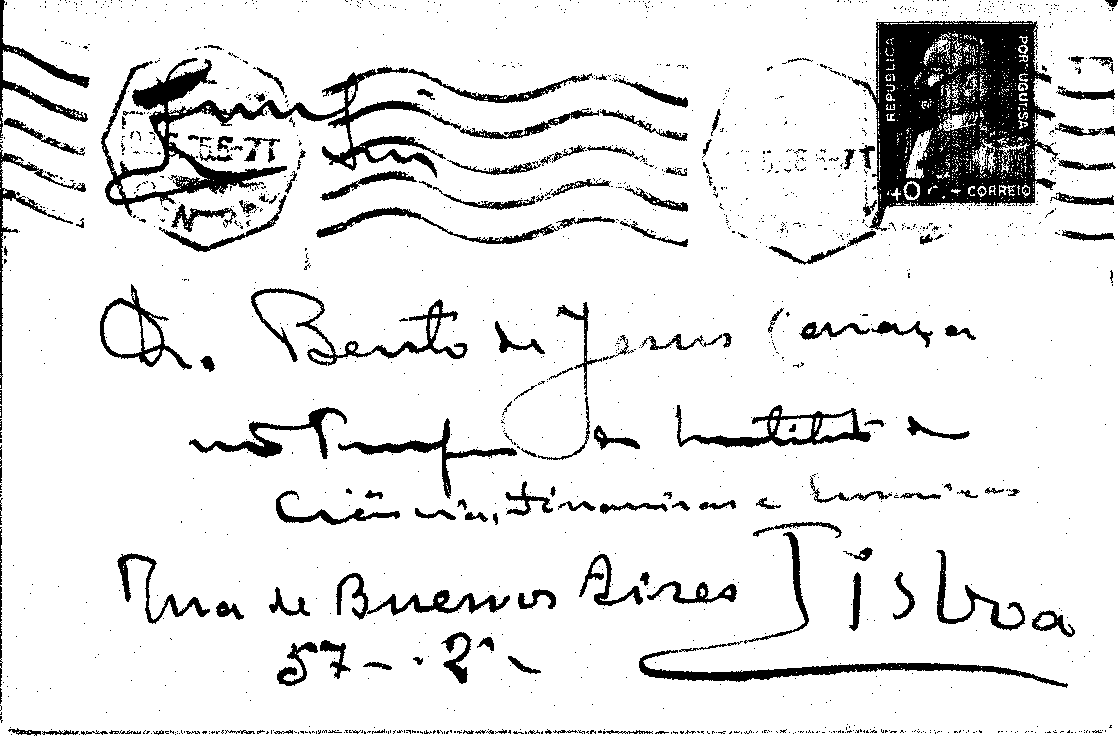 REPUBLICA
PORTUGUESA
40 c. - CORREIO
Dr. Bento de Jesus Caraça
do Instituto de
Ciências, Financeiras e Económicas
Rua de Buenos Aires Lisboa
57 - . 2º -